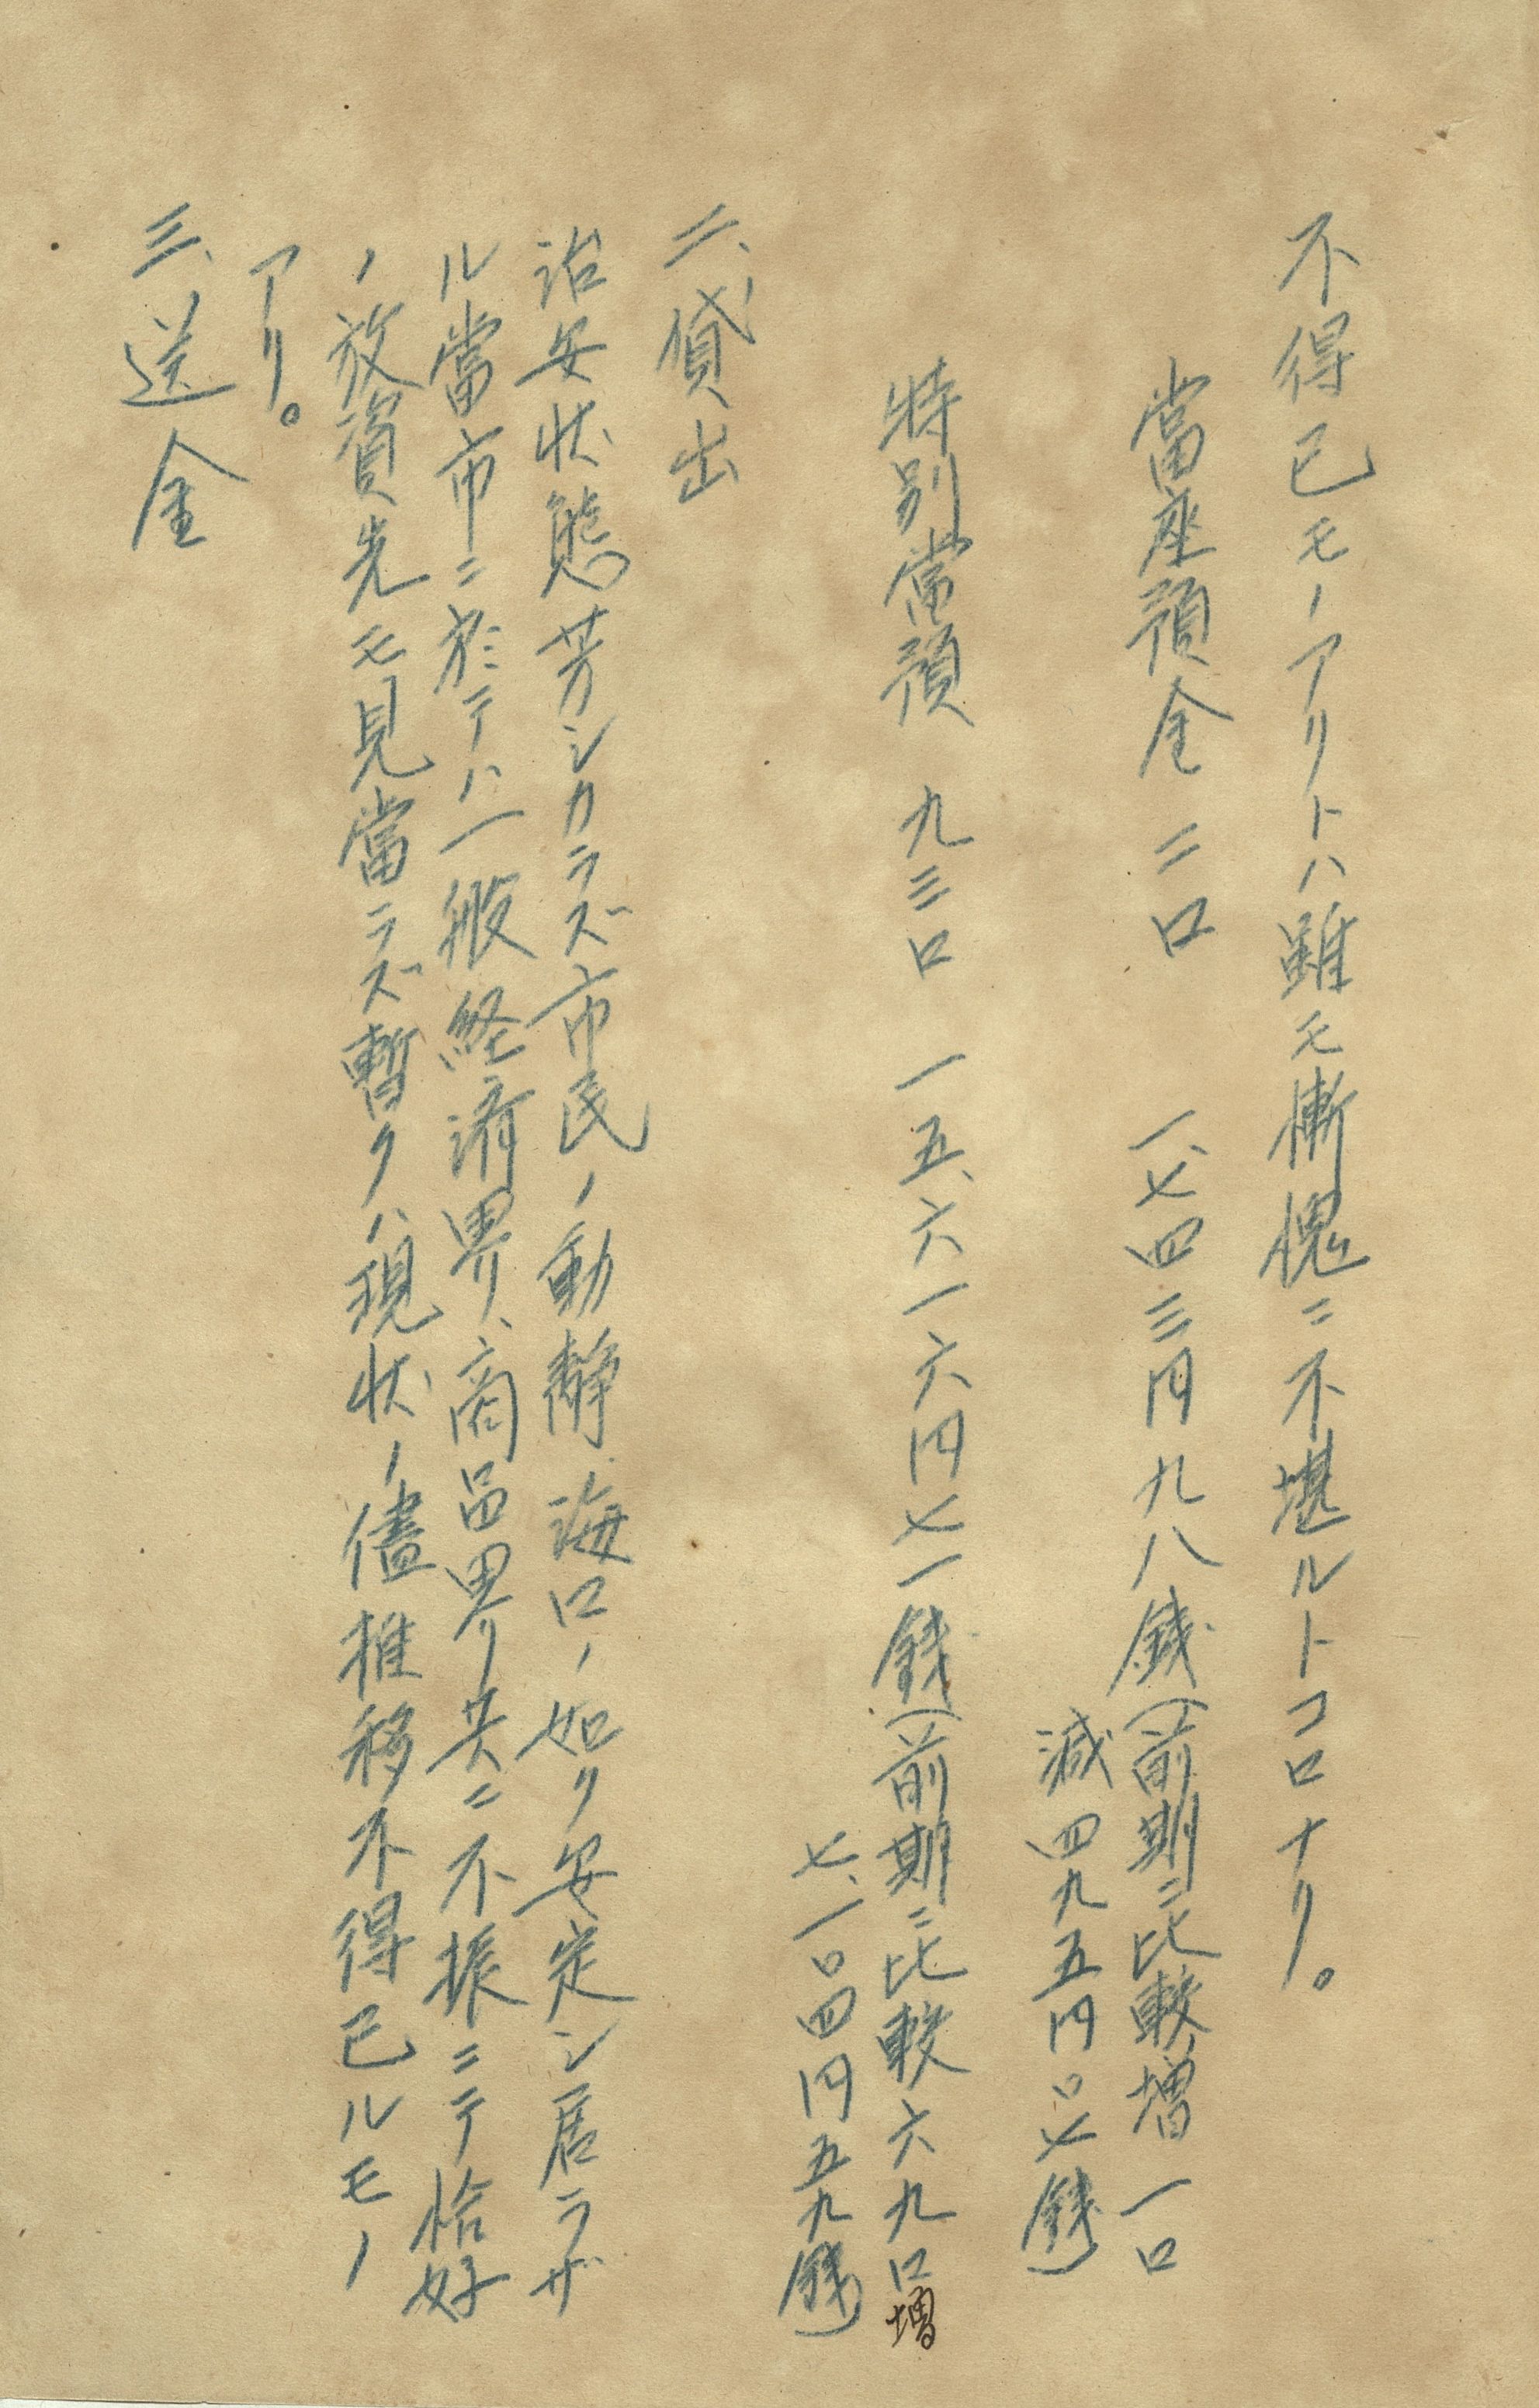 不得已モノアリトハ雖モ慚愧ニ不堪ルトコロナリ。
當座預金 二口 一、七四三円九八銭(前期ニ比較増一口
減四九五円〇七銭)
特別當預 九三口 一五、六一六円七一銭(前期ニ比較六九口増
七、一〇四円五九銭)
二、貸出
治安状態芳シカラズ市民ノ動静海口ノ如ク安定シ居ラザ
ル當市ニ於テハ一般経済界、商品界共ニ不振ニテ恰好
ノ放資先モ見當ラズ暫クハ現状ノ儘推移不得已ルモノ
アリ。
三、送金